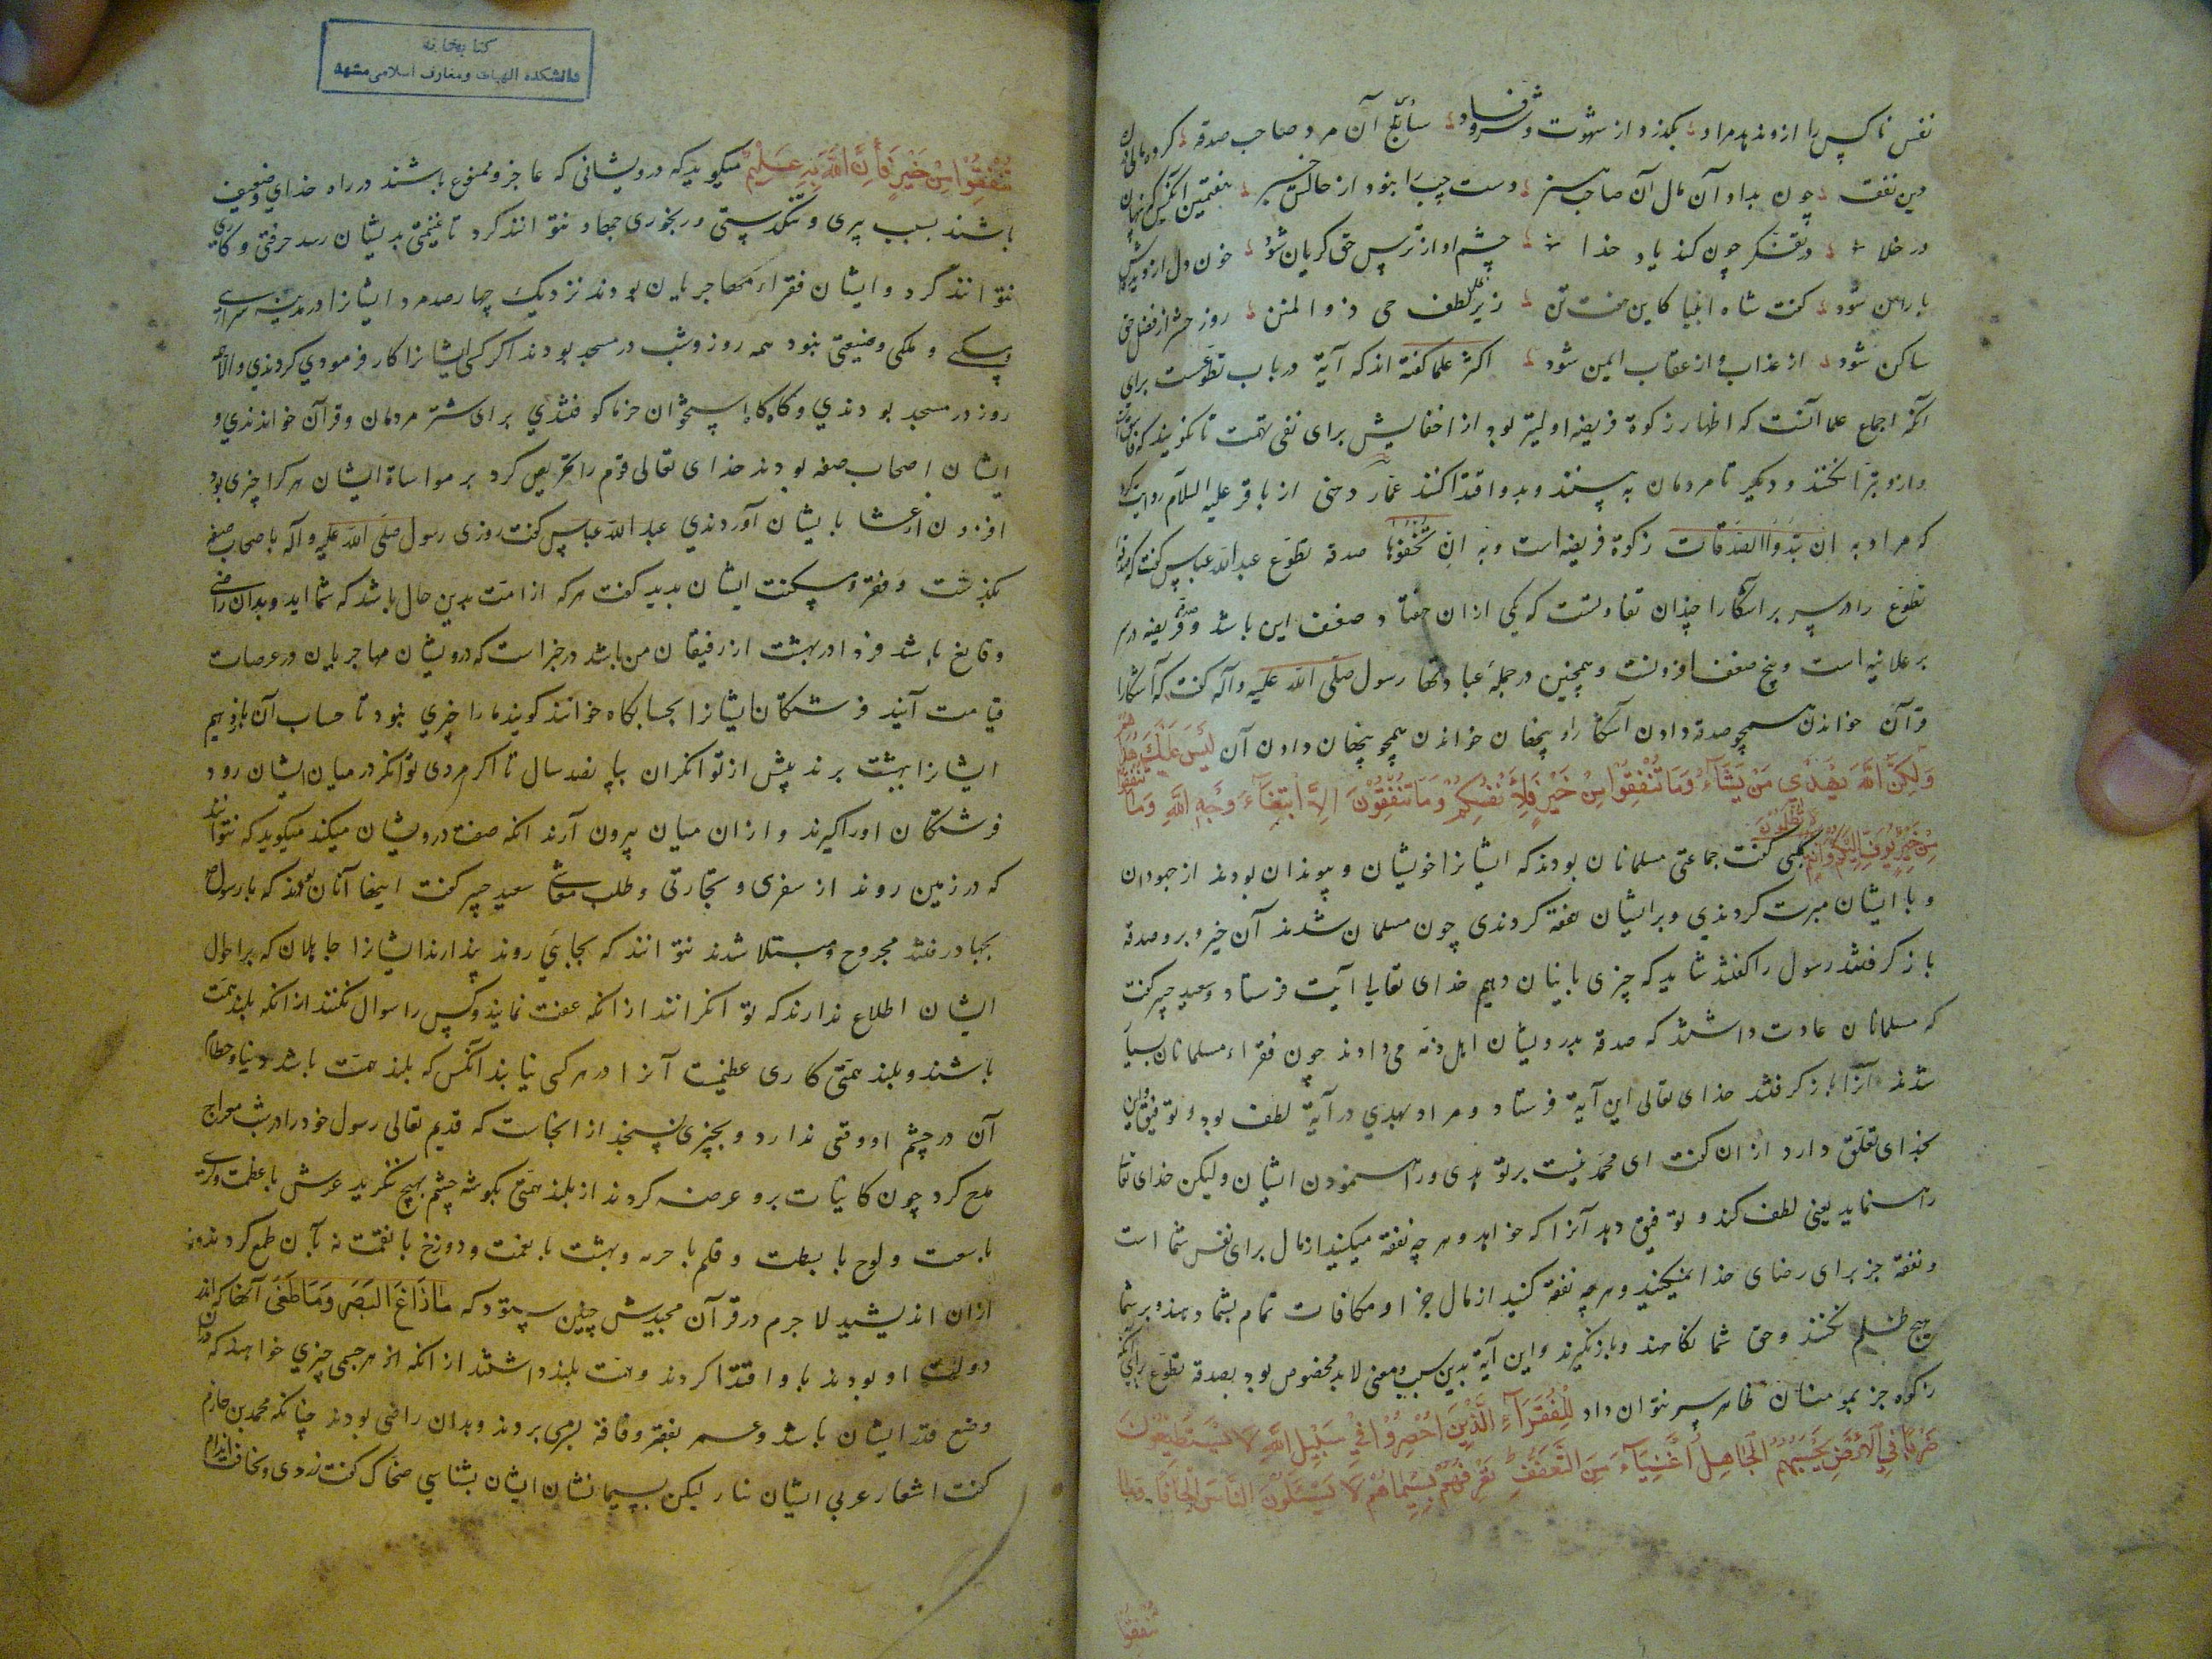 نفس ناکس را از وند بدمراد بگذرد از شهوت و شر و فساد سائغ آن مرد صاحب صدقه کرد
دین نفقت چون بداد آن مال آن صاحب دست چپ را نبود از حالش خبر هفتمین آنکس که پنهان
در خلا در تفکر چون کند یاد خدا چشم او از ترس حق گریان شود خون دل از
باران شود گفت شاه انبیا کاین هفت تن زیر ظل لطف حی ذو المنن روز حشر از فضل حق
ساکن شود از عذاب و از عقاب ایمن شود اکثر علما گفته اند که آیة در باب تطوعست برای
آنکه اجماع علما آنست که اظهار زکوة فریضه اولیتر بود از اخفایش برای نفی تهمت تا نگویند که
و ازو تبرا نکنند و دیگر تا مردمان به بینند و بدو اقتدا کنند عمار دهنی از باقر علیه السلام روایت کرد
که مراد به ان تبدوا الصدقات زکوة فریضه است و به ان تخفوها صدقه تطوع عبد الله عباس گفت که
تطوع را در سر بر آشکارا چندان تفاوتست که یکی از ان هفتاد ضعف این باشد و صدقه فریضه در سر
بر علانیه است و پنج ضعف افزونست و همچنین در جمله عبادتها رسول صلی الله علیه و آله گفت که آشکارا
قرآن خواندن همچو صدقه دادن آشکارا و پنهان خواندن همچو پنهان دادن آن لَيْسَ عَلَيْكَ هُدٰيهُمْ
وَلٰكِنَّ اللّٰهَ يَهْدِي مَنْ يَشَاءُ وَمَا تُنْفِقُوا مِنْ خَيْرٍ فَلِأَنْفُسِكُمْ وَمَا تُنْفِقُونَ إِلَّا ابْتِغَاءَ وَجْهِ اللّٰهِ وَمَا تُنْفِقُوا
مِنْ خَيْرٍ يُوَفَّ إِلَيْكُمْ وَأَنْتُمْ لَا تُظْلَمُونَ کلبی گفت جماعتی مسلمانان بودند که ایشانرا خویشان و پیوندان بودند از جهودان
و با ایشان مبرت کردندی و بر ایشان نفقه کردندی چون مسلمان شدند آن خیر و بر و صدقه
باز گرفتند رسول را گفتند شاید که چیزی باینان دهیم خدای تعالی آیت فرستاد و سعید جبیر گفت
که مسلمانان عادت داشتند که صدقه بدرویشان اهل ذمه می دادند چون فقراء مسلمانان بسیار
شدند آنرا باز گرفتند خدای تعالی این آیة فرستاد و مراد بهدی در آیة لطف بود و توفیق و این
بخدای تعلق دارد از ان گفت ای محمد نیست بر تو هدی و راه نمودن ایشان ولیکن خدای تعا
راه نماید یعنی لطف کند و توفیق دهد آنرا که خواهد و هر چه نفقه میکنید از مال برای نفس شما است
و نفقه جز برای رضای خدا نمیکنید و هر چه نفقه کنید از مال جزا و مکافات تمام بشما دهند و بر شما
هیچ ظلم نکنند و حق شما نکاهند و باز نگیرند و این آیة بدین سبب و معنی لابد مخصوص بود بصدقه تطوع برای آنکه
زکوه جز بمومنان ظاهر ستر نتوان داد لِلْفُقَرَاءِ الَّذِينَ أُحْصِرُوا فِي سَبِيلِ اللّٰهِ لَا يَسْتَطِيعُونَ
ضَرْبًا فِي الْأَرْضِ يَحْسَبُهُمُ الْجَاهِلُ أَغْنِيَاءَ مِنَ التَّعَفُّفِ تَعْرِفُهُمْ بِسِيمَاهُمْ لَا يَسْئَلُونَ النَّاسَ إِلْحَافًا وَمَا
تُنْفِقُوا
کتابخانه
دانشکده الهیات و معارف اسلامی مشهد
تُنْفِقُوا مِنْ خَيْرٍ فَإِنَّ اللّٰهَ بِهِ عَلِيمٌ میگوید که درویشانی که عاجز و ممنوع باشند در راه خدای و ضعیف
باشند بسبب پیری و تنگدستی و رنجوری جهاد نتوانند کرد تا غنیمتی بدیشان رسد حرفتی و کاری
نتوانند کرد و ایشان فقراء مهاجریان بودند نزدیک چهارصد مرد ایشانرا در مدینه سرای
و مسکنی و ملکی و ضیعتی نبود همه روز و شب در مسجد بودند اگر کسی ایشانرا کار فرمودی کردندی والا همه
روز در مسجد بودندی و گاه گاه استخوان خرما کوفتندی برای شتر مردمان و قرآن خواندندی و
ایشان اصحاب صفه بودند خدای تعالی قوم را تحریص کرد بر مواساة ایشان هر کرا چیزی بود
افزون از عشا بایشان آوردندی عبد الله عباس گفت روزی رسول صلی الله علیه و آله باصحاب صفه
بگذشت و فقر و مسکنت ایشان بدید گفت هر که از امت بدین حال باشد که شما اید و بدان راضی
و قانع باشد فردا در بهشت از رفیقان من باشد در خبر است که درویشان مهاجریان در عرصات
قیامت آیند فرشتگان ایشانرا بحسابگاه خوانند گویند ما را چیزی نبود تا حساب آن باز دهیم
ایشانرا ببهشت برند پیش از توانگران بپانصد سال تا اگر مردی توانگر در میان ایشان رود
فرشتگان او را گیرند و از ان میان بیرون آرند آنکه صفت درویشان میکند میگوید که نتوانند
که در زمین روند از سفری و تجارتی و طلب معاش سعید جبیر گفت اینها آنان بودند که با رسول
بجهاد رفتند مجروح و مبتلا شدند نتوانند که بجایی روند پندارند ایشانرا جاهلان که بر احوال
ایشان اطلاع ندارند که توانگرانند از آنکه عفت نمایند و کس را سوال نکنند از آنکه بلند همت
باشند و بلند همتی کاری عظیمست آنرا در هر کسی نیابند آنکس که بلند همت باشد دنیا و حطام
آن در چشم او وقتی ندارد و بچیزی نسنجد از اینجاست که قدیم تعالی رسول خود را در شب معراج
مدح کرد چون کاینات برو عرضه کردند از بلند همتی بگوشه چشم بهیچ ننگرید عرش با عظمت و کرسی
با سعت و لوح با بسطت و قلم با جریه و بهشت با نعمت و دوزخ با نقمت نه بآن طمع کرد نه
ازان اندیشید لاجرم در قرآن مجیدش چنین ستود که ما زاغ البصر وما طغی آنها که
دولت او بودند باو اقتدا کردند و همت بلند داشتند از آنکه از هر جمعی چیزی خواهند که
وضع قدر ایشان باشد و عمر بفقر و فاقه بسر می بردند و بدان راضی بودند چنانکه محمد بن حازم
گفت اشعار عربی ایشان نثار لیکن بسیما نشان ایشان بشناسی ضحاک گفت زردی و نحافت اندام